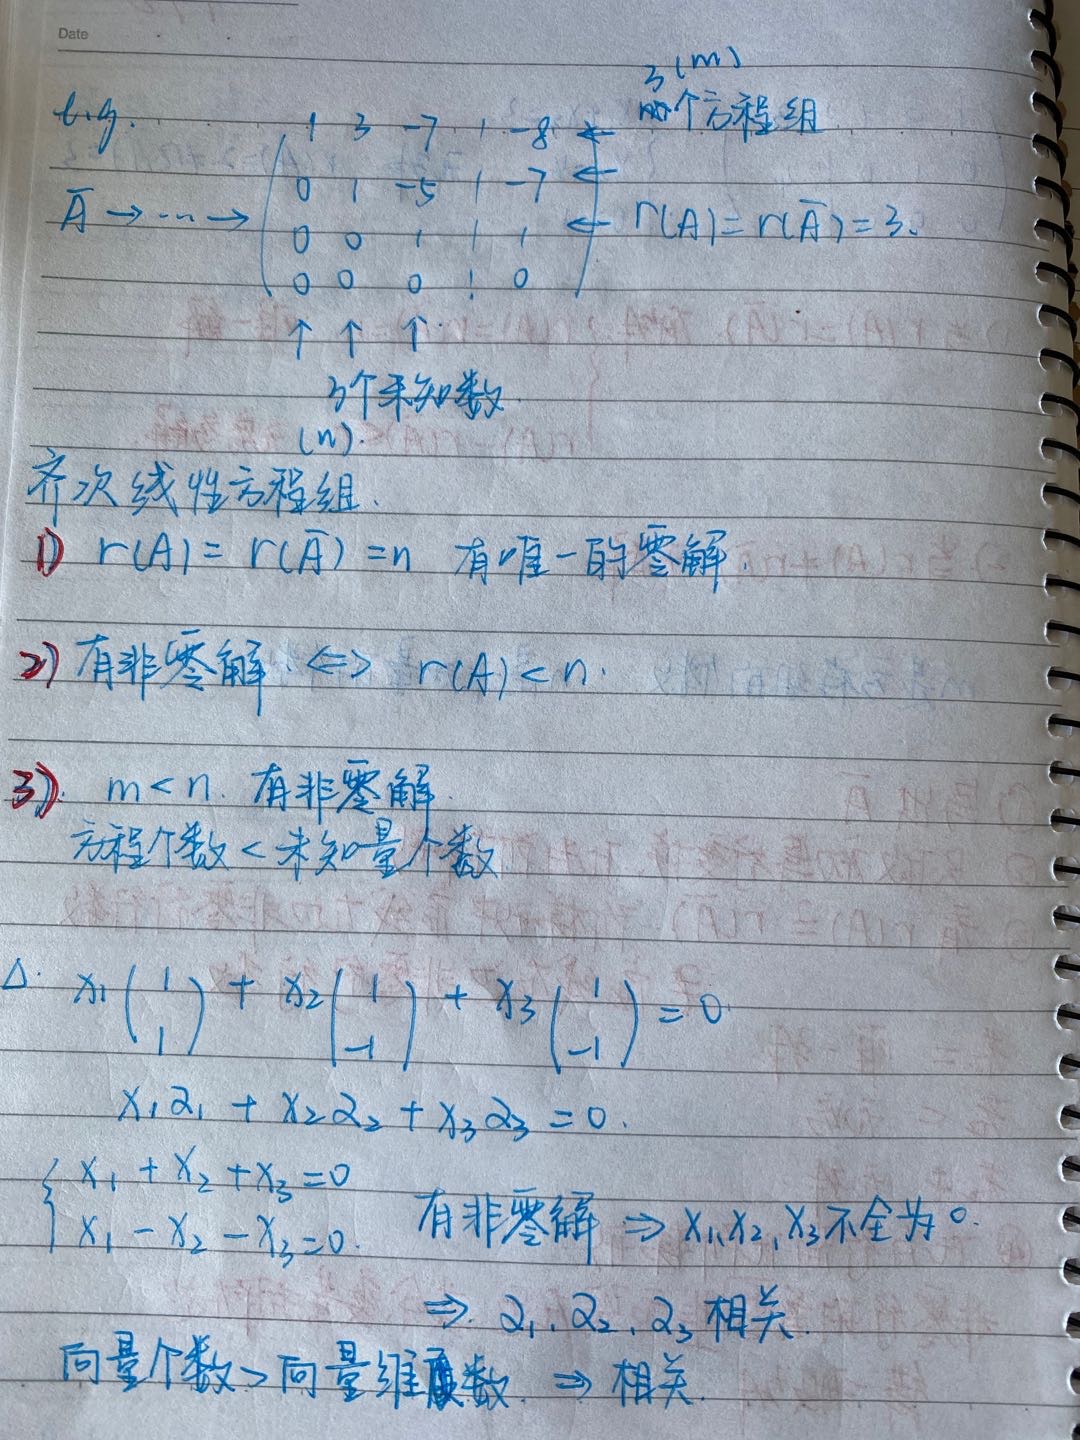 Date
e.g.
3(m)
个方程组
1 3 -7 1 -8 ←
0 1 -5 1 -7 ←
Ā → ... → 0 0 1 1 1 ← r(A)=r(Ā)=3.
0 0 0 1 0
↑ ↑ ↑
3个未知数
(n).
齐次线性方程组.
1) r(A) = r(Ā) = n 有唯一的零解.
2) 有非零解 ⇔ r(A) < n.
3). m < n. 有非零解.
方程个数 < 未知量个数
△. x₁(1 1) + x₂(1 -1) + x₃(1 -1) = 0
x₁α₁ + x₂α₂ + x₃α₃ = 0.
{ x₁ + x₂ + x₃ = 0
x₁ - x₂ - x₃ = 0. 有非零解 ⇒ x₁, x₂, x₃不全为0.
⇒ α₁, α₂, α₃ 相关.
向量个数 > 向量维数 ⇒ 相关.